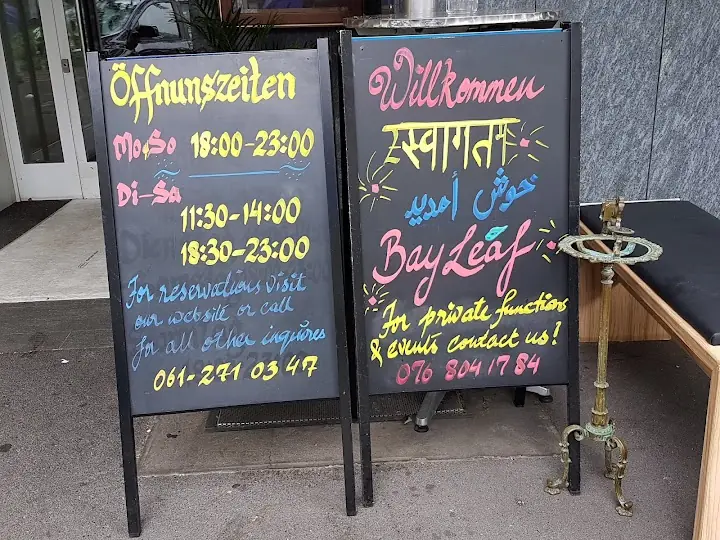 Öffnunszeiten
Mo & So 18:00-23:00
Di-Sa
11:30-14:00
18:30-23:00
For reservations visit
our website or call
for all other inquires
061-271 03 47
Willkommen
स्वागतम
خوش أمدید
Bay Leaf
For private functions
& events contact us!
076 804 17 84